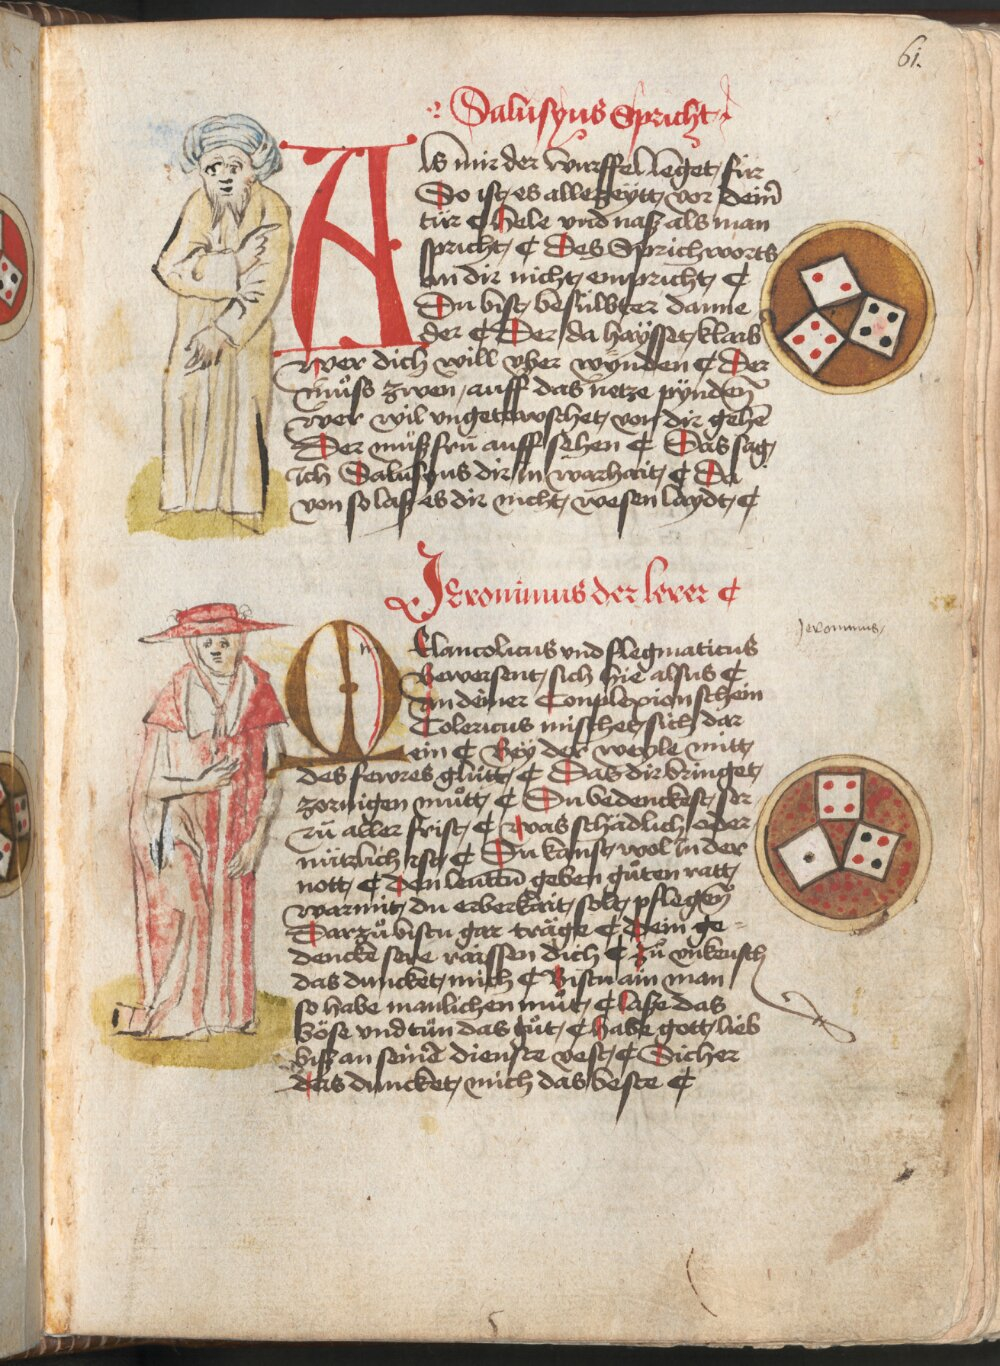 61.
Salusyus Spricht
Als mir der würffel leget für
So ist es alle zeytt vor deiner
tür Hele und nasz als man
spricht Des Sprichworts
an dir nicht empricht
Du bist besülbter danne
der Der da haysset klaus
wer dich will vber wÿnden Der
müss zwen auff das netze pÿnden
wer wil vngetewschet von dir gehē
Der müsz frü auff sehen Das sag
ich Salusyus dir in warhait Da
von so lasz es dir nicht wesen laydt
Jeronimus der lerer
Jeronimus
Melancolicus vnd flegmaticus
bewersent sich hie alsus
An deiner Complexion schein
Colericus mischet sich dar
ein Bey der weyle mitt
des fewres glütt Das dir bringet
zornigen mütt Du bedenckest ser
zü aller frist was schädlich oder
nützlich ist Du kanst wol in der
nott Den leuttē geben güten ratt
warmit du erberkait solt pflegen
Darzü bistu gar träge Dein ge=
dencke sere raissen dich zü vnkeusch
das duncket mich Bistu ain man
so habe manlichen müt lasze das
böse vnd tün das güt habe gott lieb
bisz an seinē dienste vest Sicher
das duncket mich das beste